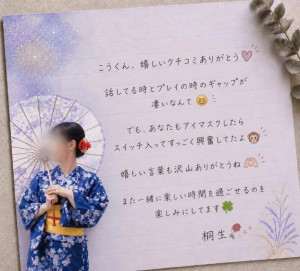 こうくん、嬉しいクチコミありがとう💓
話してる時とプレイの時のギャップが
凄いなんて😆
でも、あなたもアイマスクしたら
スイッチ入ってすっごく興奮してたよ🙊
嬉しい言葉も沢山ありがとうね🫶🏻
また一緒に楽しい時間を過ごせるのを
楽しみにしてます🍀
桐生🌹